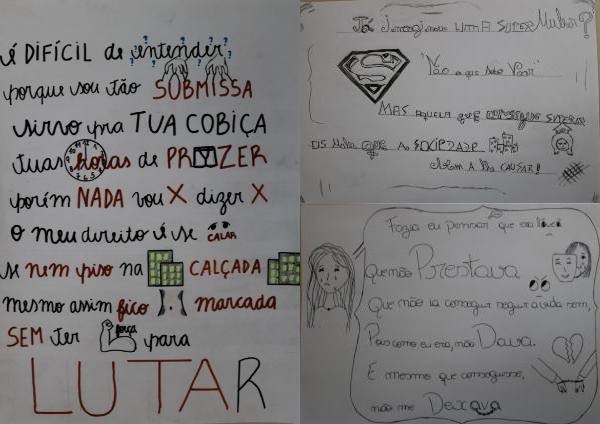 é DIFÍCIL de entender
porque sou tão SUBMISSA
sirvo pra TUA COBIÇA
tuas horas de PRAZER
porém NADA vou X dizer X
O meu direito é se CALAR
se nem piso na CALÇADA
mesmo assim fico marcada
SEM ter força para
LUTAR
Já imaginou UMA SUPER Mulher?
"Não a que sabe Voar"
MAS aquela que consegue superar
os que A SOCIEDADE
vem A lhe CAUSAR!
Fazia eu pensar que era louca
que não Prestava
Que não ia conseguir seguir a vida sem,
Pois como eu era, não Dava.
E mesmo que conseguisse,
não me Deixava